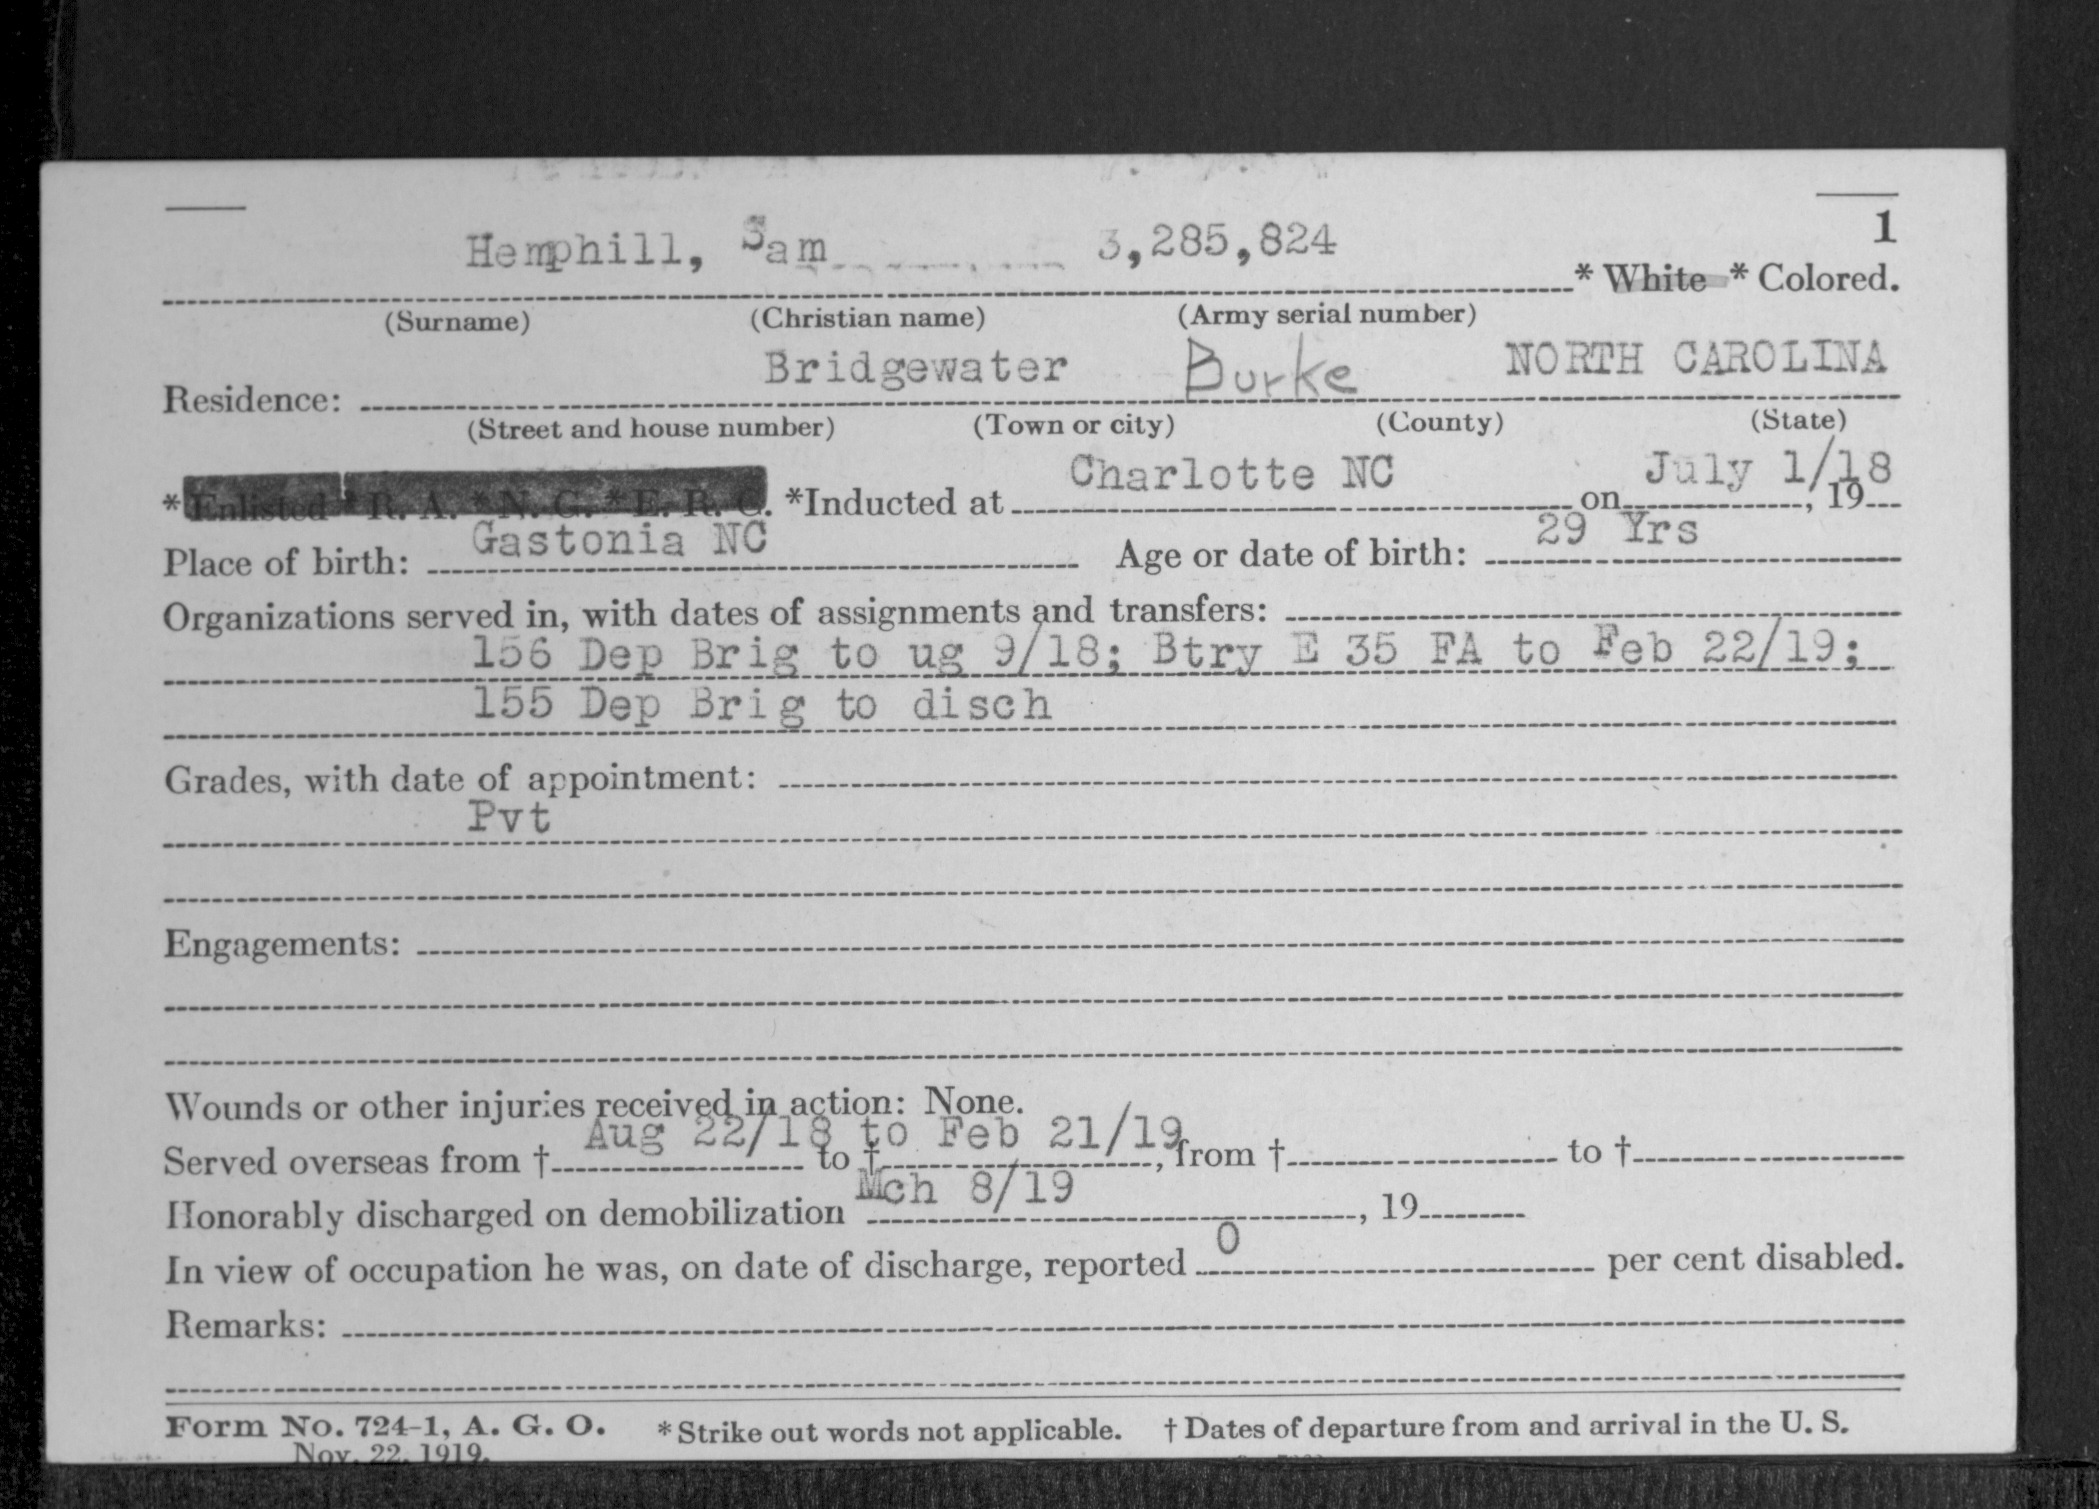 1
Hemphill, Sam 3,285,824 * White * Colored.
(Surname) (Christian name) (Army serial number)
Residence: Bridgewater Burke NORTH CAROLINA
(Street and house number) (Town or city) (County) (State)
* Enlisted * R. A. * N. G. * E. R. C. *Inducted at Charlotte NC on July 1/18, 19
Place of birth: Gastonia NC Age or date of birth: 29 Yrs
Organizations served in, with dates of assignments and transfers:
156 Dep Brig to ug 9/18; Btry E 35 FA to Feb 22/19;
155 Dep Brig to disch
Grades, with date of appointment:
Pvt
Engagements:
Wounds or other injuries received in action: None.
Served overseas from † Aug 22/18 to † to Feb 21/19, from † to †
Honorably discharged on demobilization Mch 8/19, 19
In view of occupation he was, on date of discharge, reported 0 per cent disabled.
Remarks:
Form No. 724-1, A. G. O. * Strike out words not applicable. † Dates of departure from and arrival in the U. S.
Nov. 22, 1919.